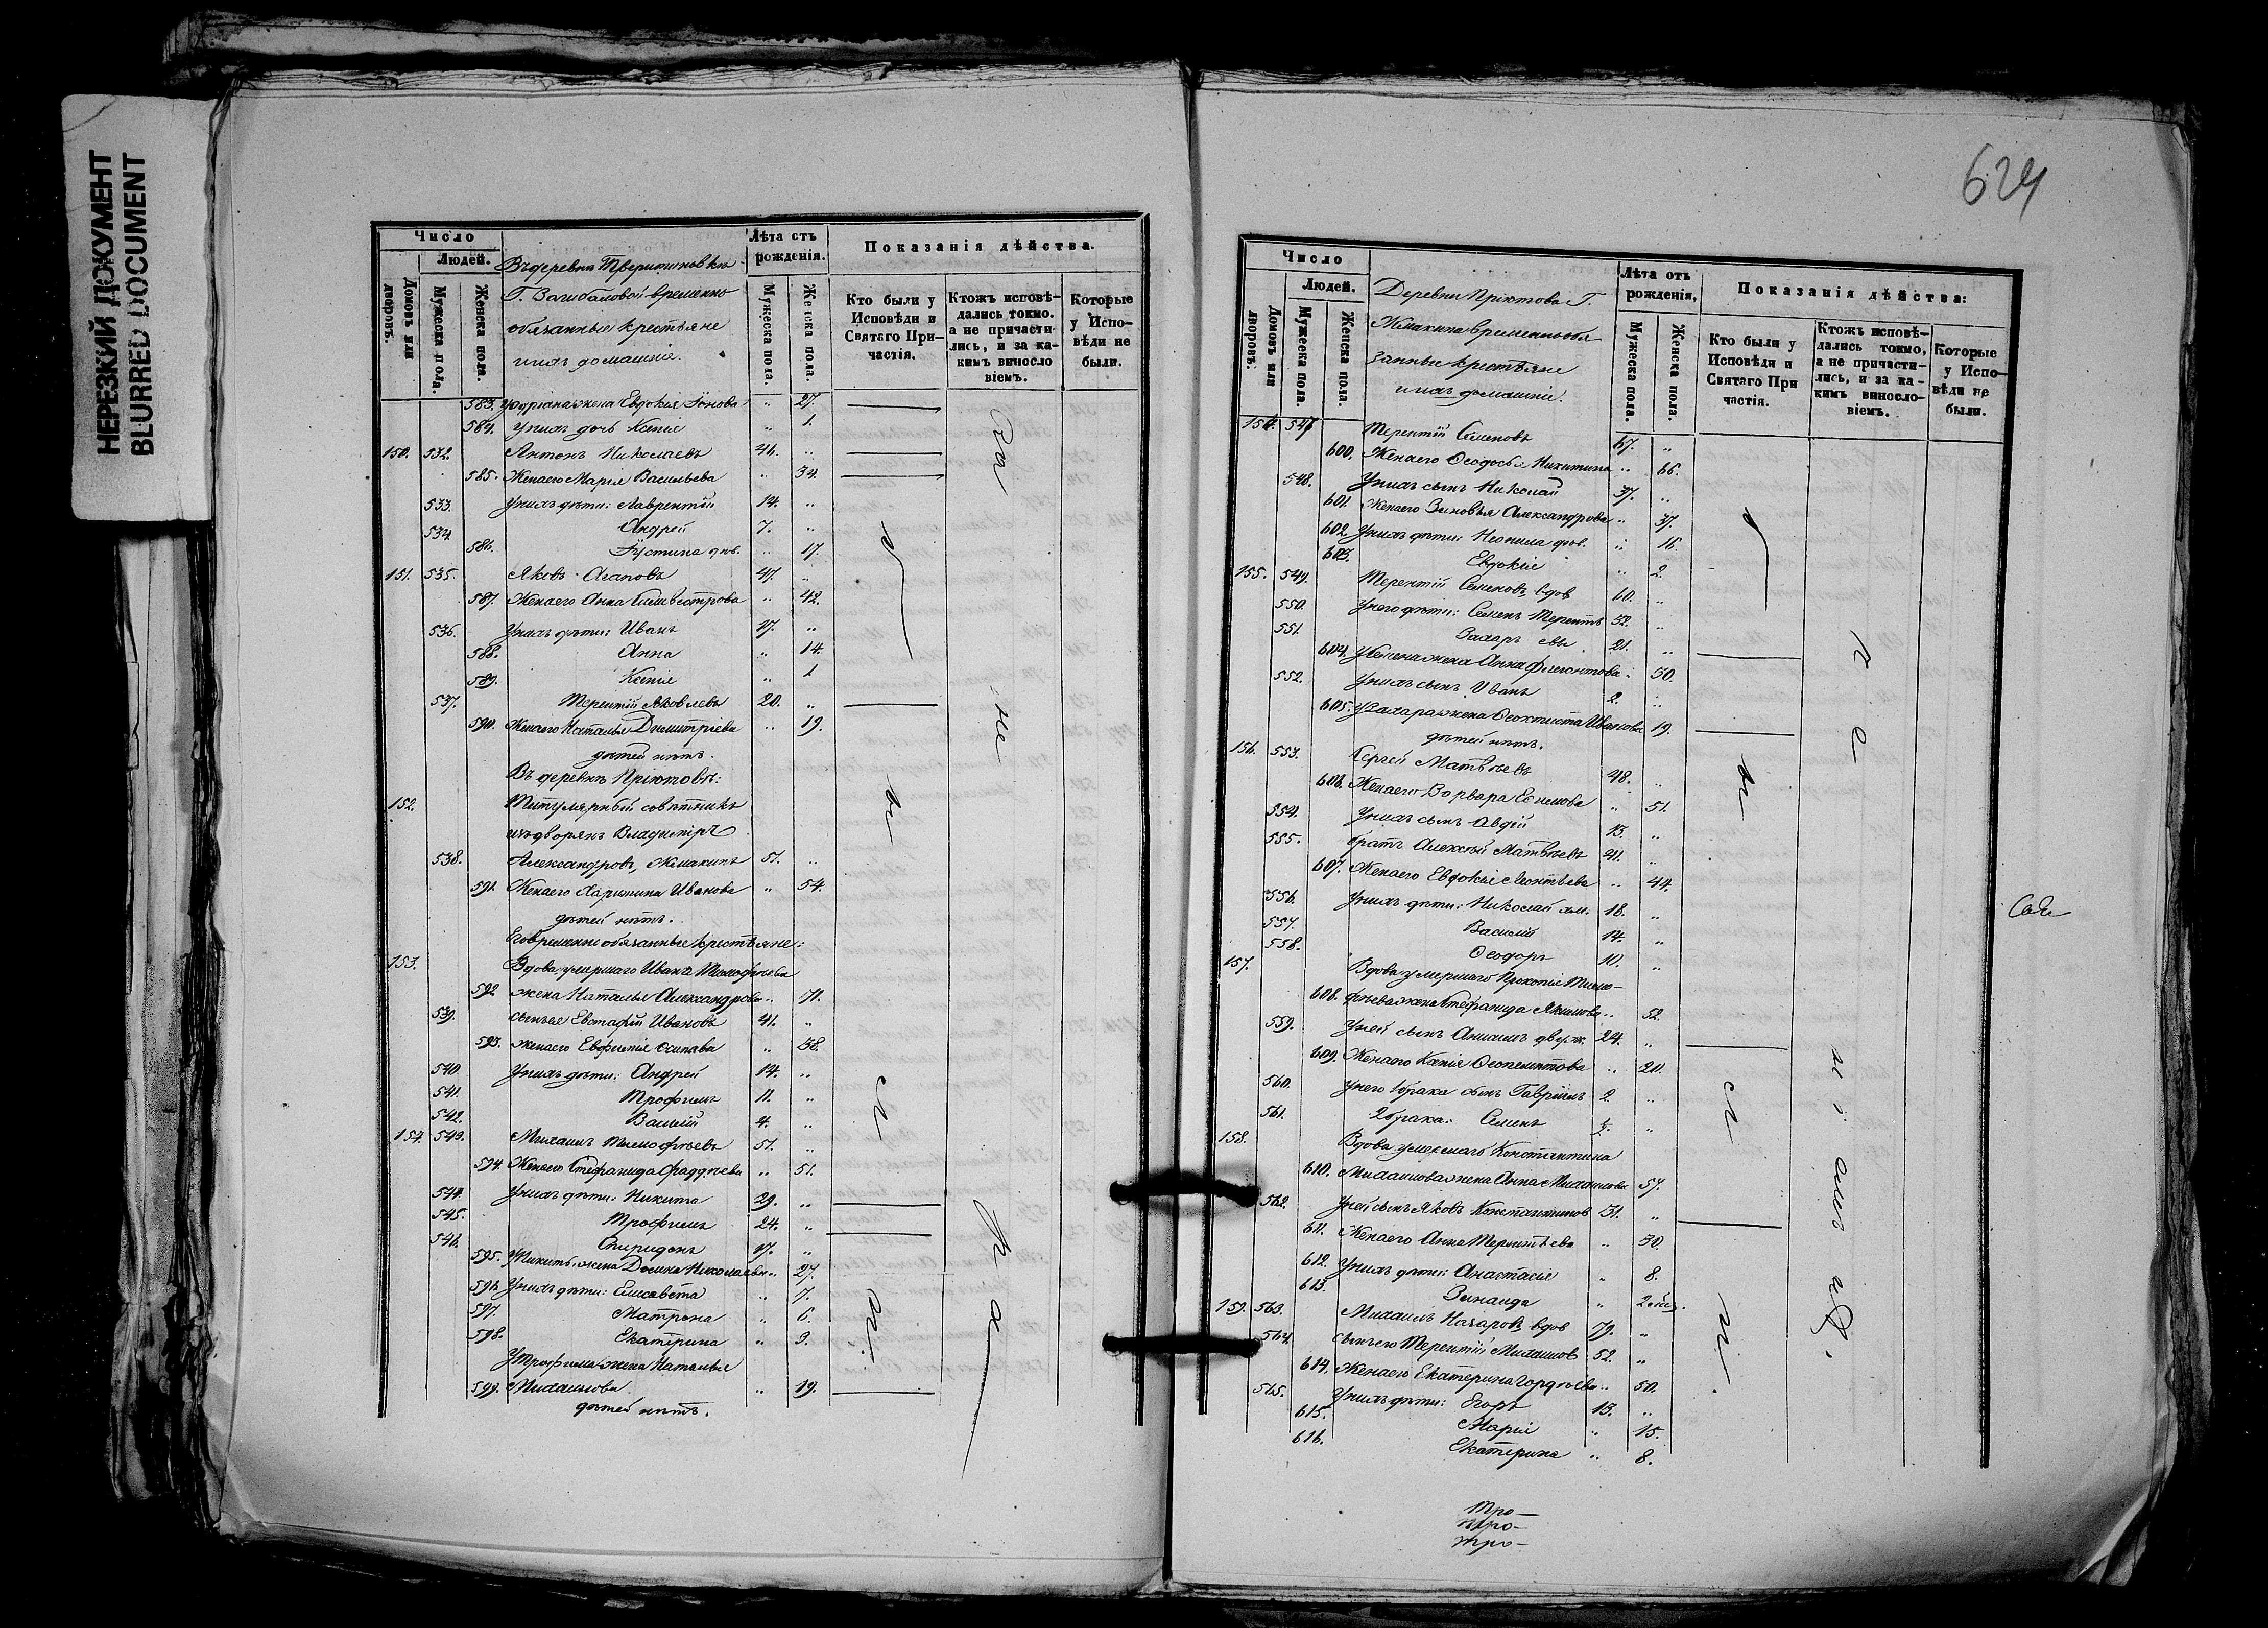 НЕРЕЗКИЙ ДОКУМЕНТ
BLURRED DOCUMENT
Число
Людей.
Домовъ или дворовъ.
Мужеска пола.
Женска пола.
Въ деревнѣ Тверитиновкѣ
Г. временно
обязанные крестьяне
и ихъ домашніе.
Лѣта отъ рожденія.
Мужеска пола.
Женска пола.
Показанія дѣйства.
Кто были у Исповѣди и Святаго Причастія.
Ктожъ исповѣдались токмо, а не причастились, и за какимъ винословіемъ.
Которые у Исповѣди не были.
583. жена Евдокія Іонова " 27.
584. У нихъ дочь Ксенія " 1.
150. 532. Антонъ Николаевъ 46. "
585. Жена его Марія Васильева " 34.
533. У нихъ дѣти: Лаврентій 14. "
534 Андрей 7. "
586. Іустина дѣв. " 17.
151. 535. Яковъ Агаповъ 47. "
587. Жена его Анна Сильвестрова " 42.
536. У нихъ дѣти: Иванъ 17. "
588. Анна " 14.
589. Ксенія " 1
537. Терентій Яковлевъ 20. "
590. Жена его Наталья Димитріева " 19.
дѣтей нѣтъ.
Въ деревнѣ Пріютовѣ:
152. Титулярный совѣтникъ
изъ дворянъ Владиміръ
538. Александровъ Жмакинъ 51. "
591. Жена его Харитина Иванова " 54.
дѣтей нѣтъ.
Его временно обязанные крестьяне:
153. Вдова, умершаго Ивана Тимофѣева
592 жена Наталья Александрова " 71.
539. сынъ ея Евстафій Ивановъ 41. "
593. жена его Евфимія Осипава " 38.
540. У нихъ дѣти: Андрей 14. "
541. Трофимъ 11. "
542. Василій 4. "
154 543. Михаилъ Тимофѣевъ 51. "
594. Жена его Стефанида Фаддѣева " 51.
544. У нихъ дѣти: Никита 29. "
545. Трофимъ 24. "
546. Спиридонъ 17. "
595. У Никиты жена Домна Николаева " 27.
596. У нихъ дѣти: Елисавета " 7.
597. Матрона " 6.
598. Екатерина " 3.
У Трофима жена Наталья
599. Михаилова " 19.
дѣтей нѣтъ.
624
Число
Людей.
Домовъ или дворовъ.
Мужеска пола.
Женска пола.
Деревни Пріютова Г.
Жмакина временнообя
занные крестьяне
и ихъ домашніе.
Лѣта отъ рожденія,
Мужеска пола.
Женска пола.
Показанія дѣйства:
Кто были у Исповѣди и Святаго Причастія.
Ктожъ исповѣдались токмо, а не причастились, и за какимъ винословіемъ.
Которые у Исповѣди не были.
154. 547 Терентій Семеновъ 67. "
600. Жена его Ѳеодосья Никитина " 66.
548. У нихъ сынъ Николай 37. "
601. Жена его Зиновья Александрова " 37.
602. У нихъ дѣти: Неонила дѣв. " 16.
603. Евдокія " 2.
155. 549. Терентій Семеновъ, вдов 60. "
550. У него дѣти: Семенъ Терентъ 32. "
551. Захаръ евы. 21. "
604. У Семена жена Анна Флегонтова " 30.
552. У нихъ сынъ Иванъ 2. "
605. У Захара жена Ѳеоктиста Иванова 19.
дѣтей нѣтъ.
156. 553. Сергей Матвѣевъ 48. "
606. Жена его Варвара Ефимова " 51.
554. У нихъ сынъ Авдій 13. "
555. братъ Алексѣй Матвѣевъ 41. "
607. Жена его Евдокія Леонтьева " 44.
556. У нихъ дѣти: Николай 18. "
557. Василій 14. "
558. Ѳеодоръ 10. "
157. Вдова умершаго Прокопія Тимо-
608. фѣева жена Стефанида Якимова " 52.
559. У ней сынъ Анисимъ 24. "
609. Жена его Ксенія " 20.
560. У него 1 брака сынъ Гавріилъ 2. "
561. 2 брака: Семенъ "
158. Вдова умершаго Константина
610. Михаилова жена Анна Михаилова 57.
562. У ней сынъ Яковъ Константиновъ 31. "
611. Жена его Анна Терентьева " 30.
612. У нихъ дѣти: Анастасія " 8.
613. Зинаида "
159. 563. Михаилъ Назаровъ, вдов 79. "
564 сынъ его Терентій Михаиловъ 52. "
614. Жена его Екатерина Гордѣева " 50.
565. У нихъ дѣти: Егоръ 13. "
615. Марія " 15.
616. Екатерина " 8.
Тро—
Тро—
Тро—